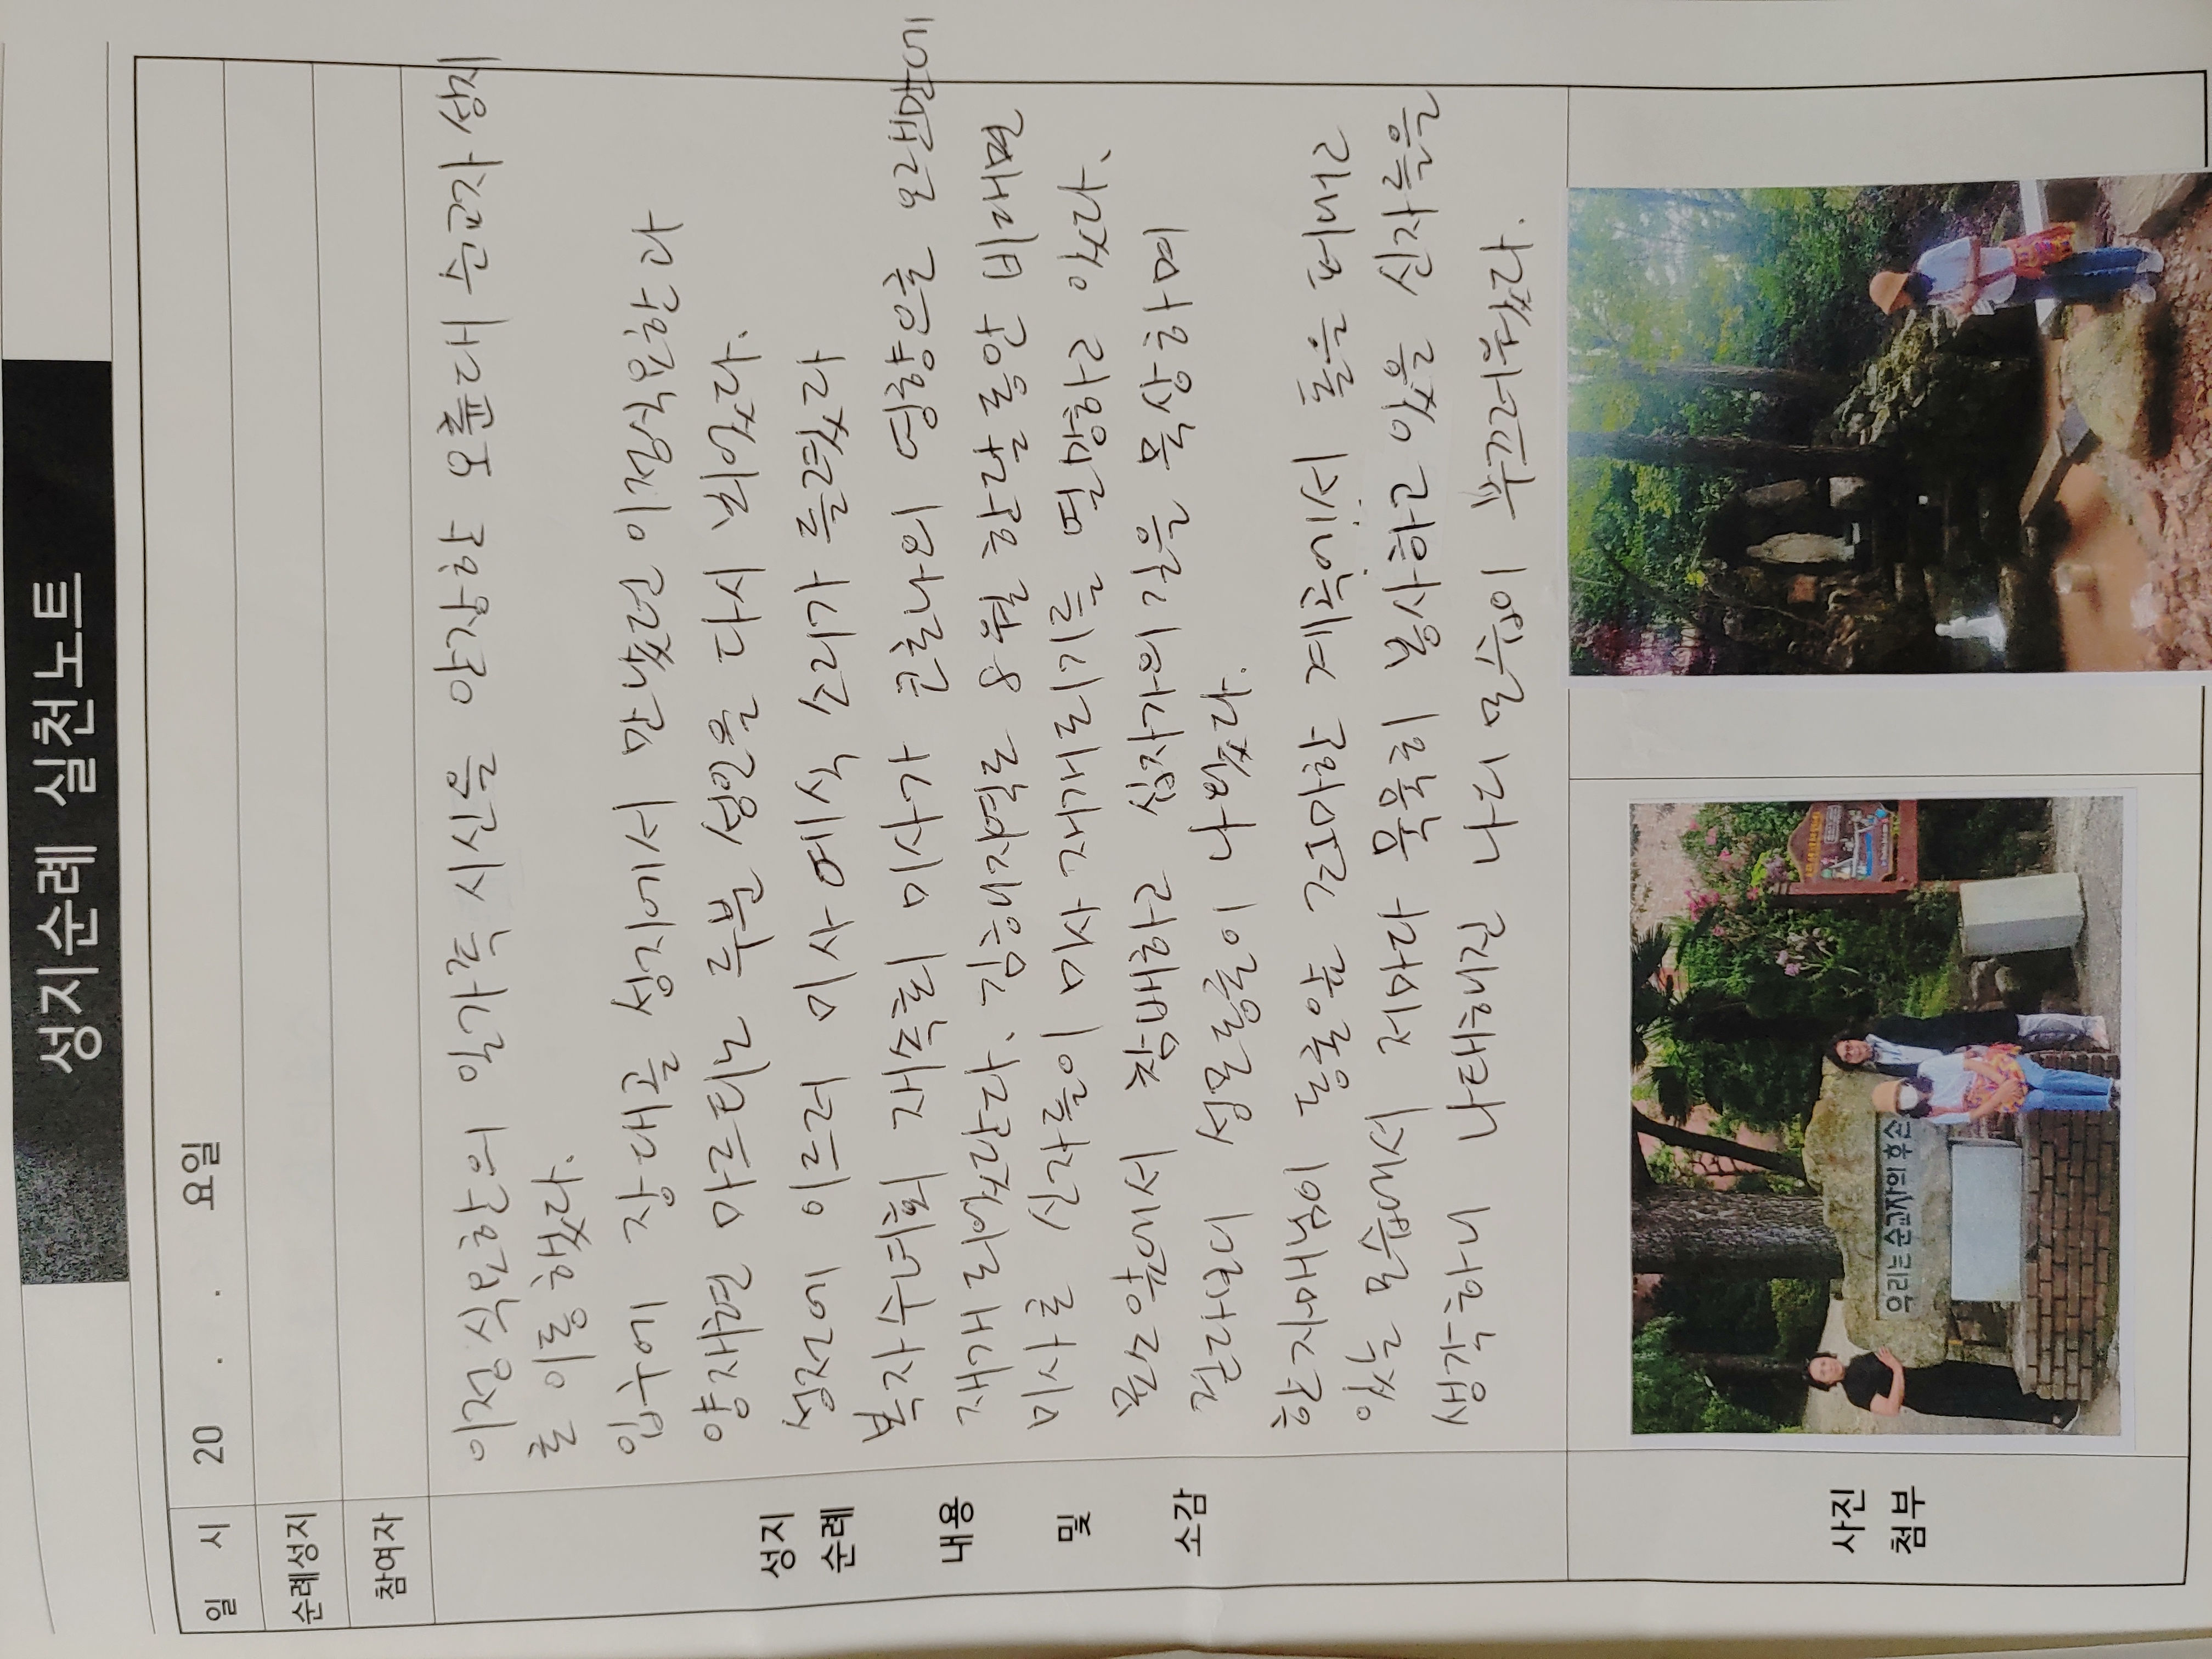 성지순례 실천노트
일 시 20 . . 요일
순례성지
참여자
성지
순례
내용
및
소감
이정식요한의 일가족 시신을 안장한 오륜대 순교자 성지
로 이동했다.
입구에 장대골 성지에서 만났던 이정식요한과
양재현 마르티노 두분 성인을 다시 뵈었다.
성전에 이르러 미사예식 소리가 들렸다
복자수녀회 재속회 미사가 코로나의 영향으로 오랜만에
재개되었단다. 김해지역도 8월 한달동안 비대면
미사로 신자들이 미사 재개되기를 열망하고 있다.
묘소앞에서 참배하고 십자가의길을 묵상하며
걷다보니 성모동굴이 나왔다.
한자매님이 동굴앞 조그마한 계곡에서 돌을 퍼내고
있는 모습에서 저마다 묵묵히 봉사하고 있을 신자들을
생각하니 나태해진 나의 모습이 부끄러웠다.
사진
첨부
우리는 순교자의 후손